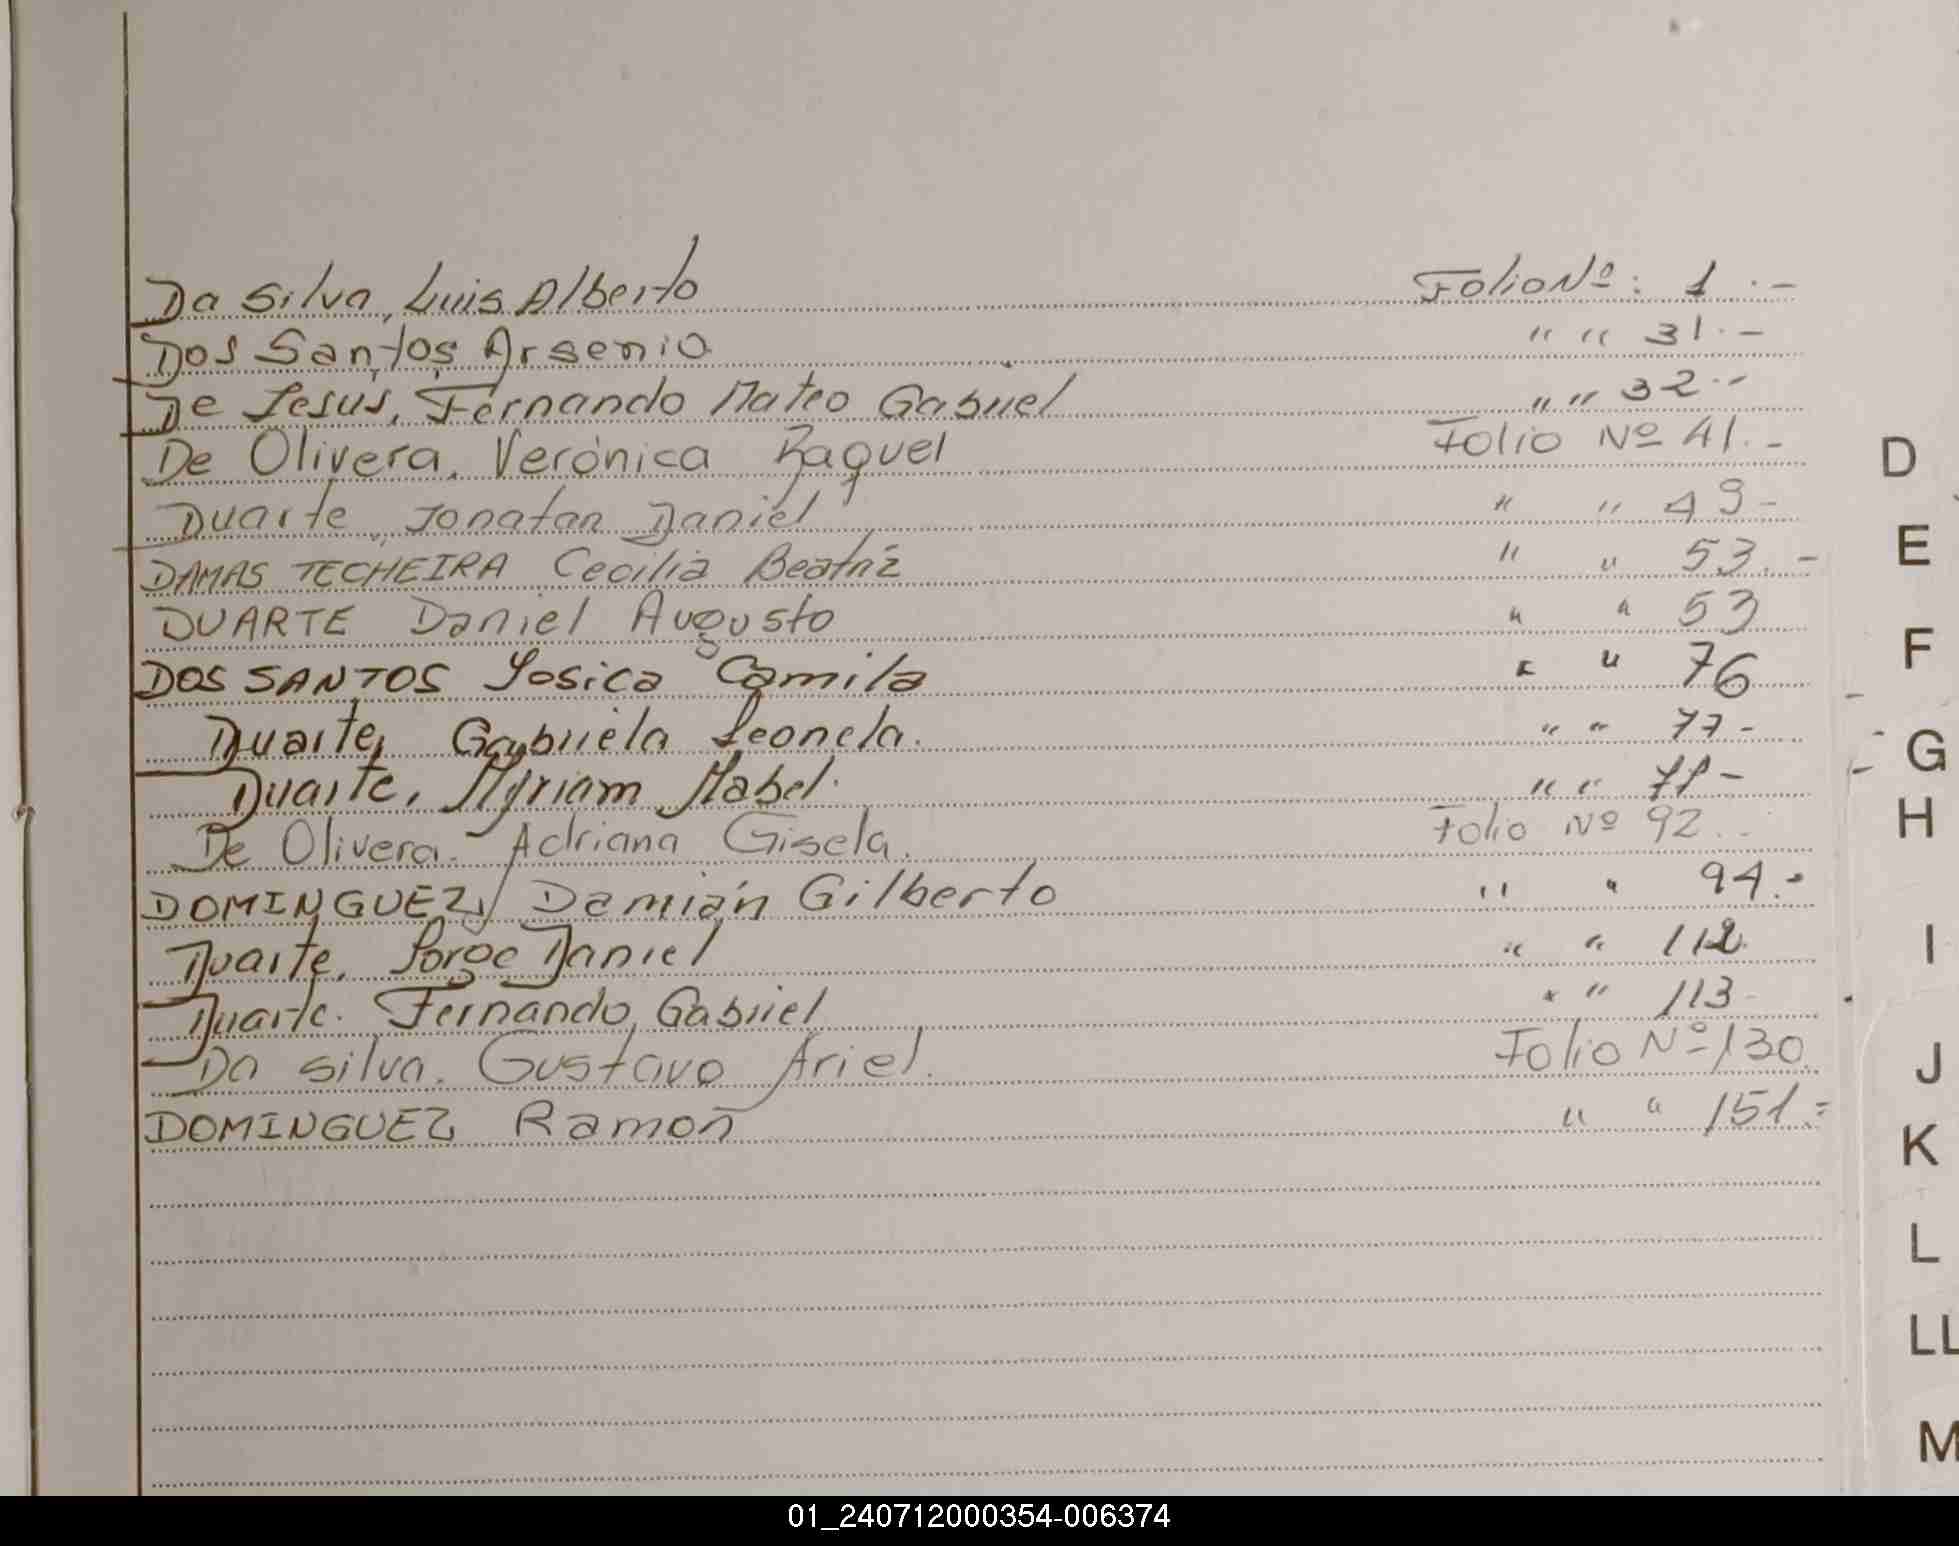 Da Silva, Luis Alberto Folio Nº: 1.-
Dos Santos, Arsenio " " 31.-
De Jesus, Fernando Mateo Gabriel " " 32.-
De Olivera, Verónica Raquel Folio Nº 41.-
Duarte, Jonatan Daniel " " 49-
DAMAS TECHEIRA Cecilia Beatriz " " 53.-
DUARTE Daniel Augusto " " 53
DOS SANTOS Yosica Camila " " 76
Duarte, Gabriela Leonela. " " 77-
Duarte, Myriam Mabel. " "
De Olivera. Adriana Gisela. Folio Nº 92..
DOMINGUEZ, Damián Gilberto " " 94.-
Duarte, Jorge Daniel " " 112.
Duarte. Fernando Gabriel " " 113-
Da silva. Gustavo Ariel. Folio Nº 130.
DOMINGUEZ Ramon " " 151.=
D
E
F
G
H
I
J
K
L
LL
M
01_240712000354-006374